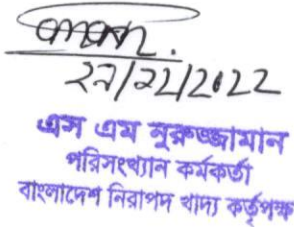 ২৯/১২/২০২২
এস এম নুরুজ্জামান
পরিসংখ্যান কর্মকর্তা
বাংলাদেশ নিরাপদ খাদ্য কর্তৃপক্ষ